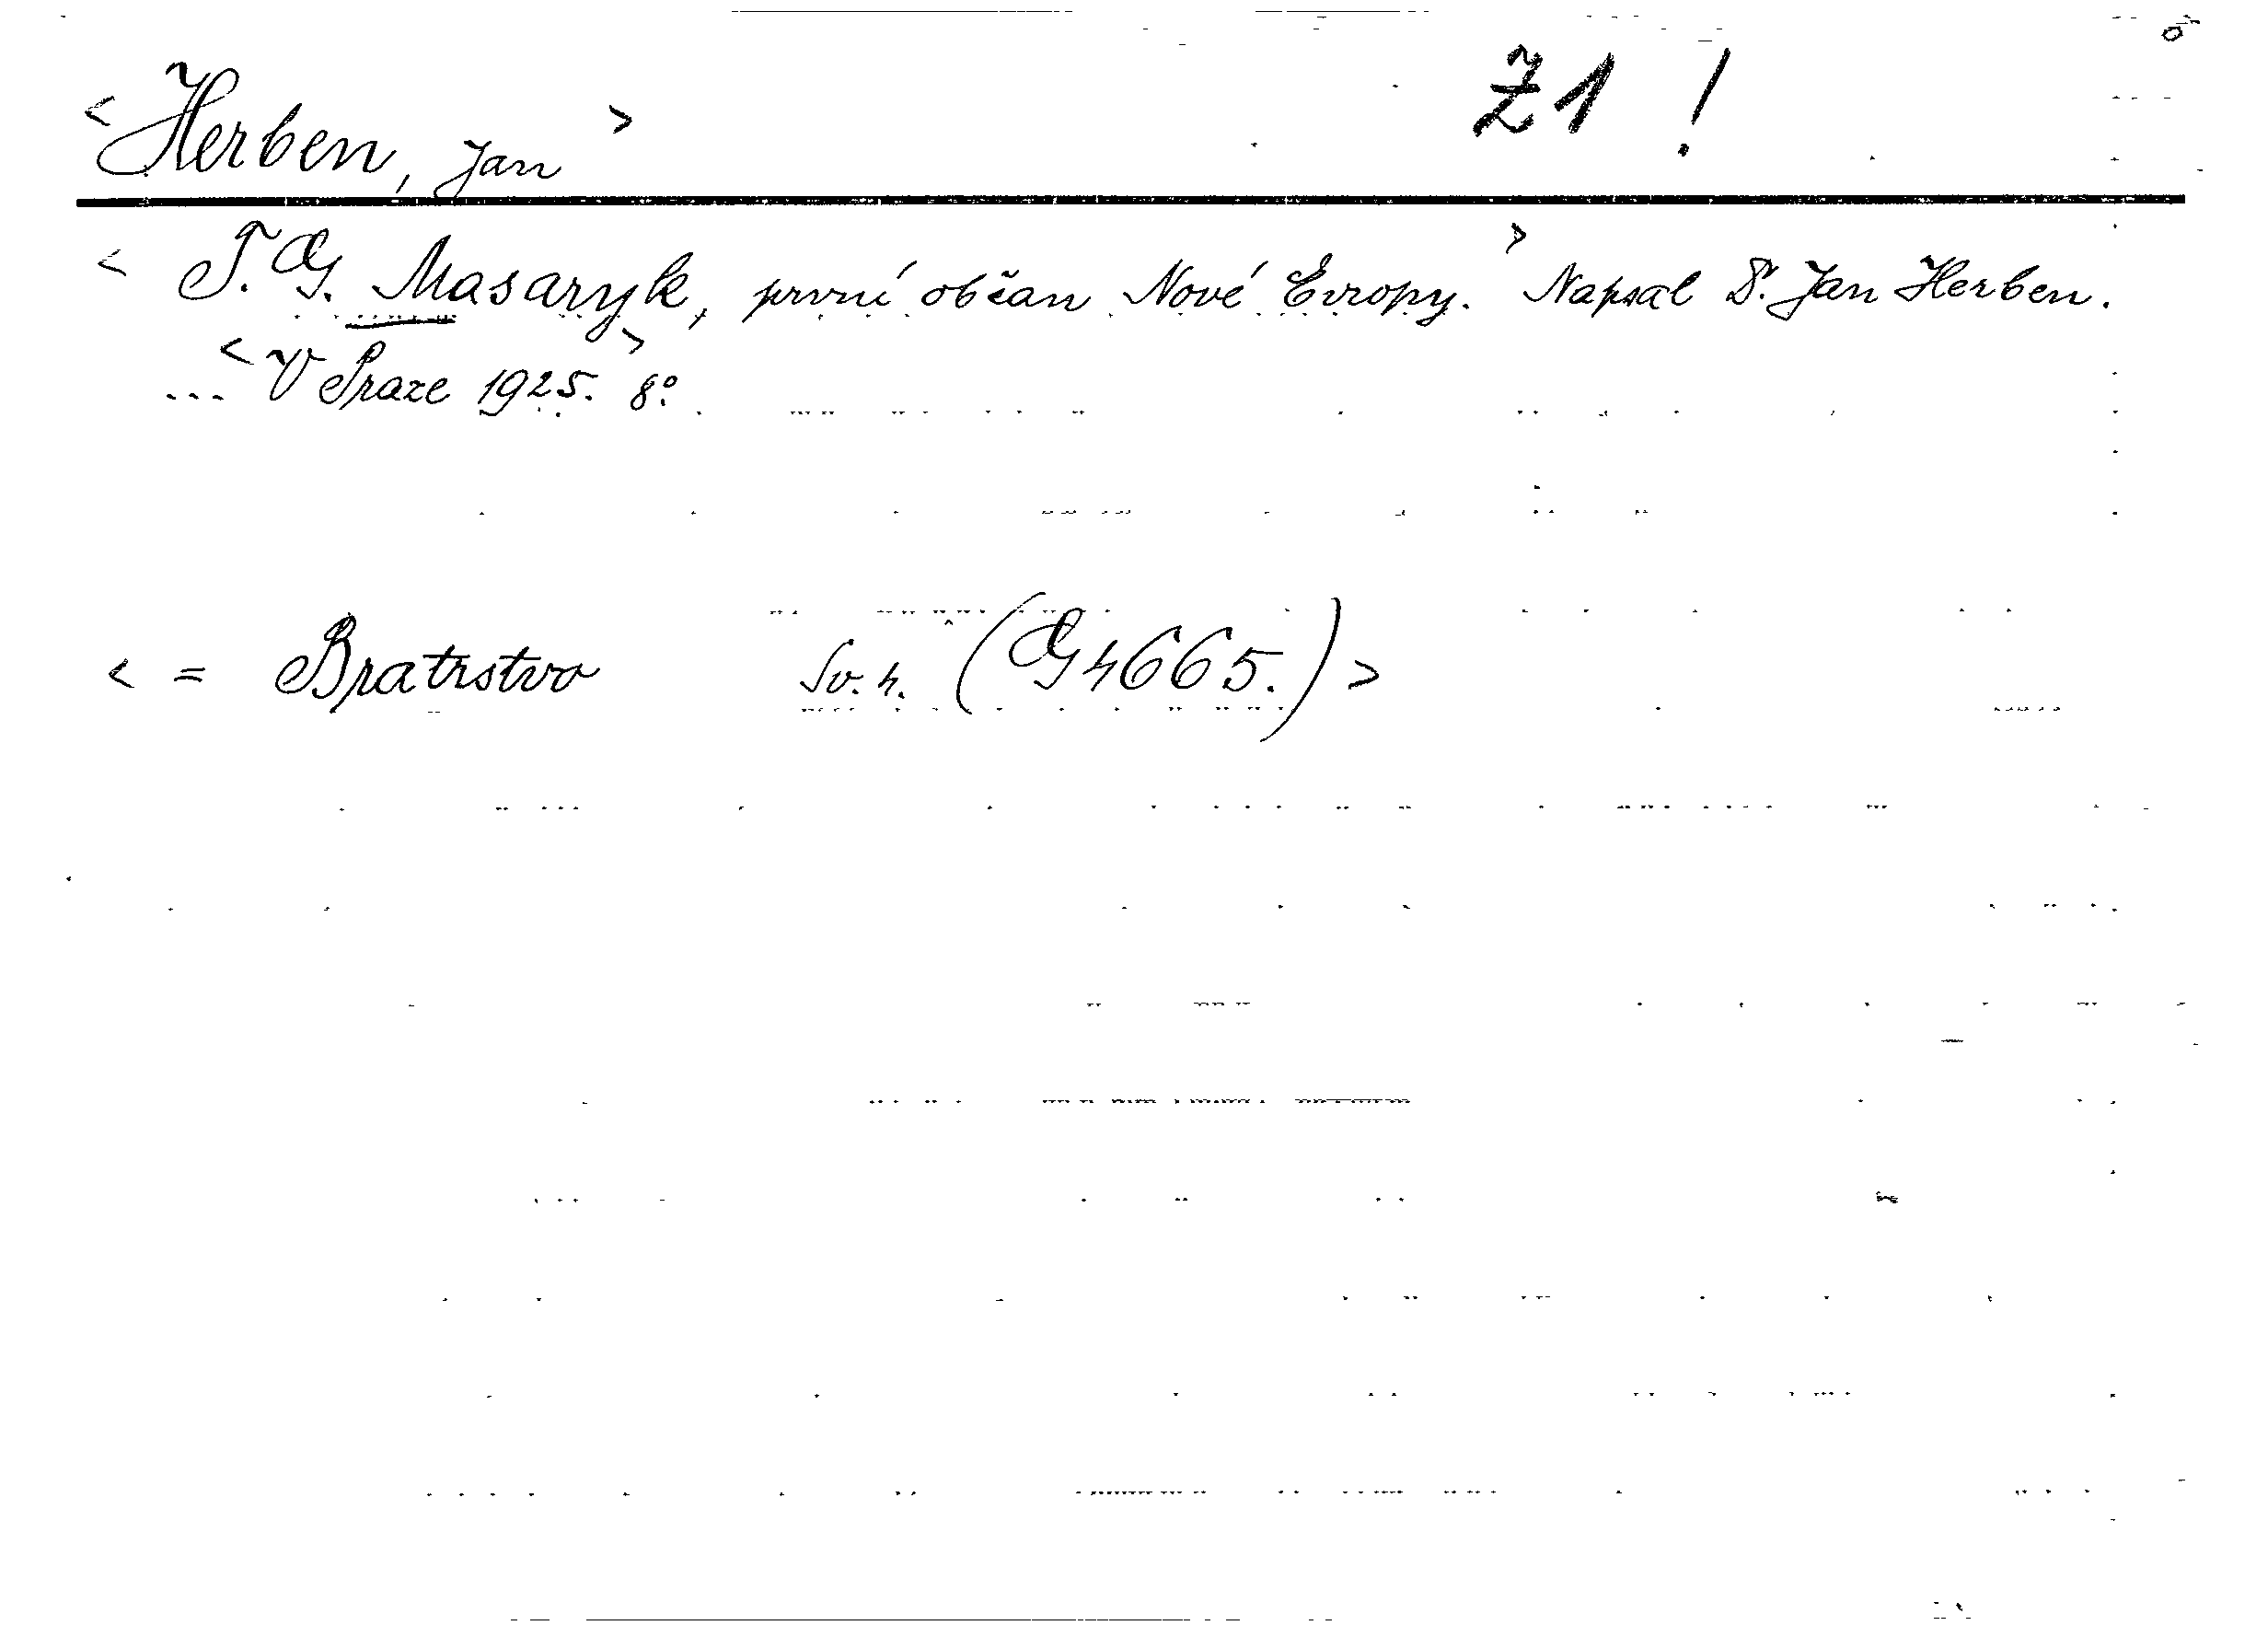 <Herben, Jan> Z1!
<T. G. Masaryk, první občan Nové Evropy.> Napsal Dr. Jan Herben.
... <V Praze 1925.> 8°.
<= Bratrstvo Sv. 4. (G4665.)>